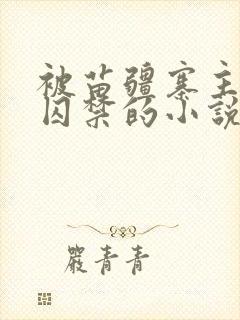 被苗疆寨主
囚禁的小說
嚴青青